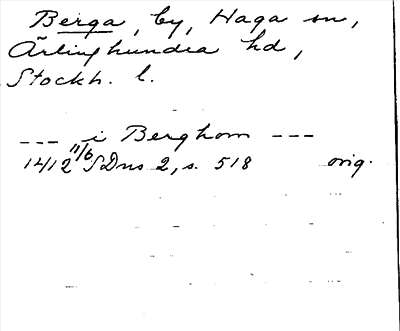 Berga, by, Haga sn,
Ärlinghundra hd,
Stockh. l.
--- i Berghom ---
1412 11/6 SDns 2, s. 518 orig.